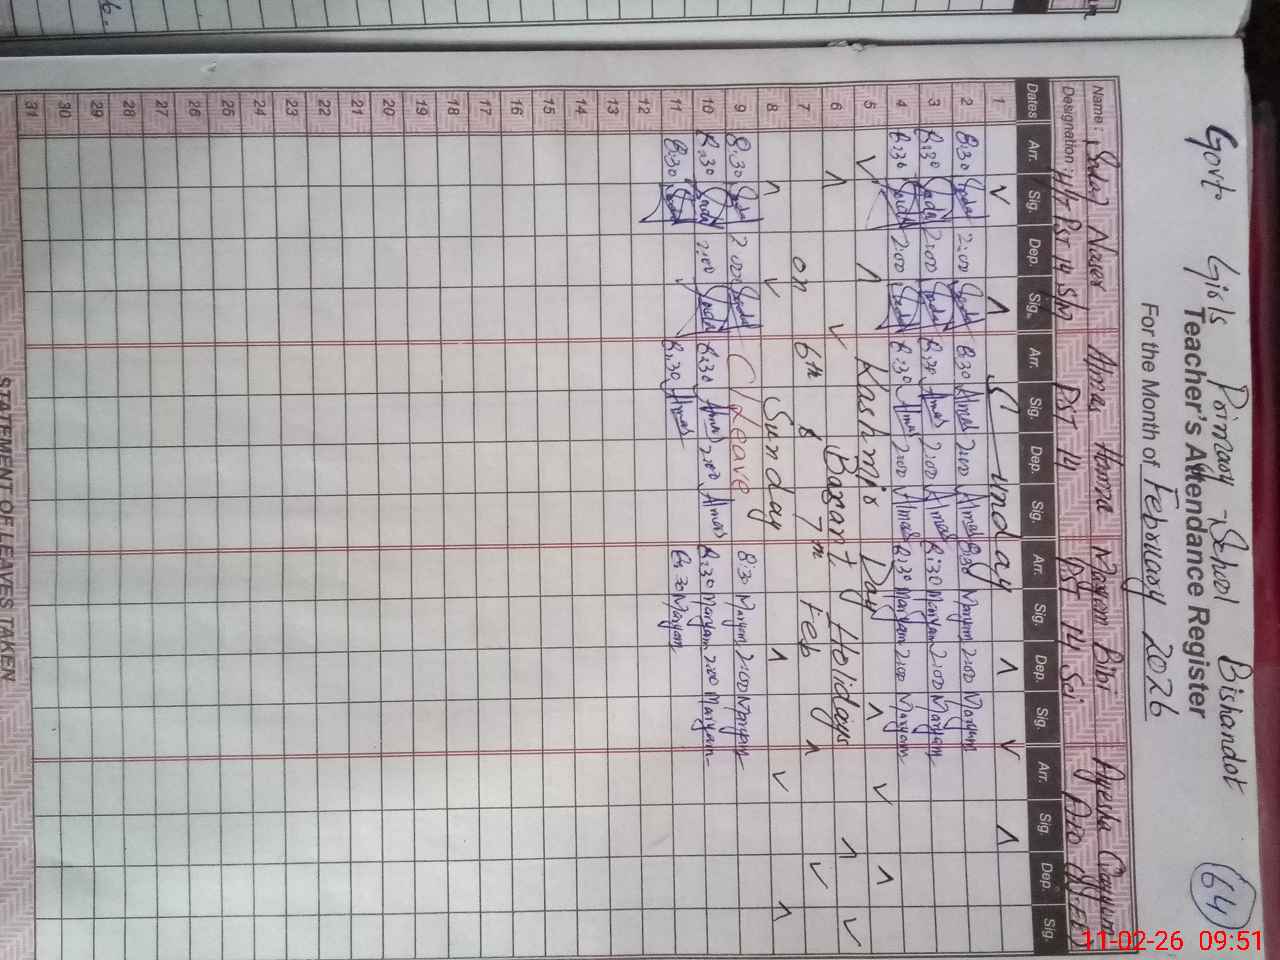 Govt Girls Primary School Bishandot 64
Teacher's Attendance Register
For the Month of February 2026
Name: Naser Almas Hamza Maryam Bibi Ayesha Qayyum
Designation: PST 14 PST 14 PST 14 Sci.
Dates Arr. Sig. Dep. Sig. Arr. Sig. Dep. Sig. Arr. Sig. Dep. Sig. Arr. Sig. Dep. Sig.
1 Sunday
2 8:30 2:00 8:30 Almas 2:00 Almas 8:30 Maryam 2:00 Maryam
3 8:30 2:00 8:30 Almas 2:00 Almas 8:30 Maryam 2:00 Maryam
4 8:30 2:00 8:30 Almas 2:00 Almas 8:30 Maryam 2:00 Maryam
5 Kashmir Day
6 Basant Holidays
7 on 6th & 7th Feb
8 Sunday
9 8:30 2:00 C/Leave 8:30 Maryam 2:00 Maryam
10 8:30 2:00 8:30 Almas 2:00 Almas 8:30 Maryam 2:00 Maryam
11 8:30 8:30 Almas 8:30 Maryam
12
13
14
15
16
17
18
19
20
21
22
23
24
25
26
27
28
29
30
31
STATEMENT OF LEAVES TAKEN
11-02-26 09:51